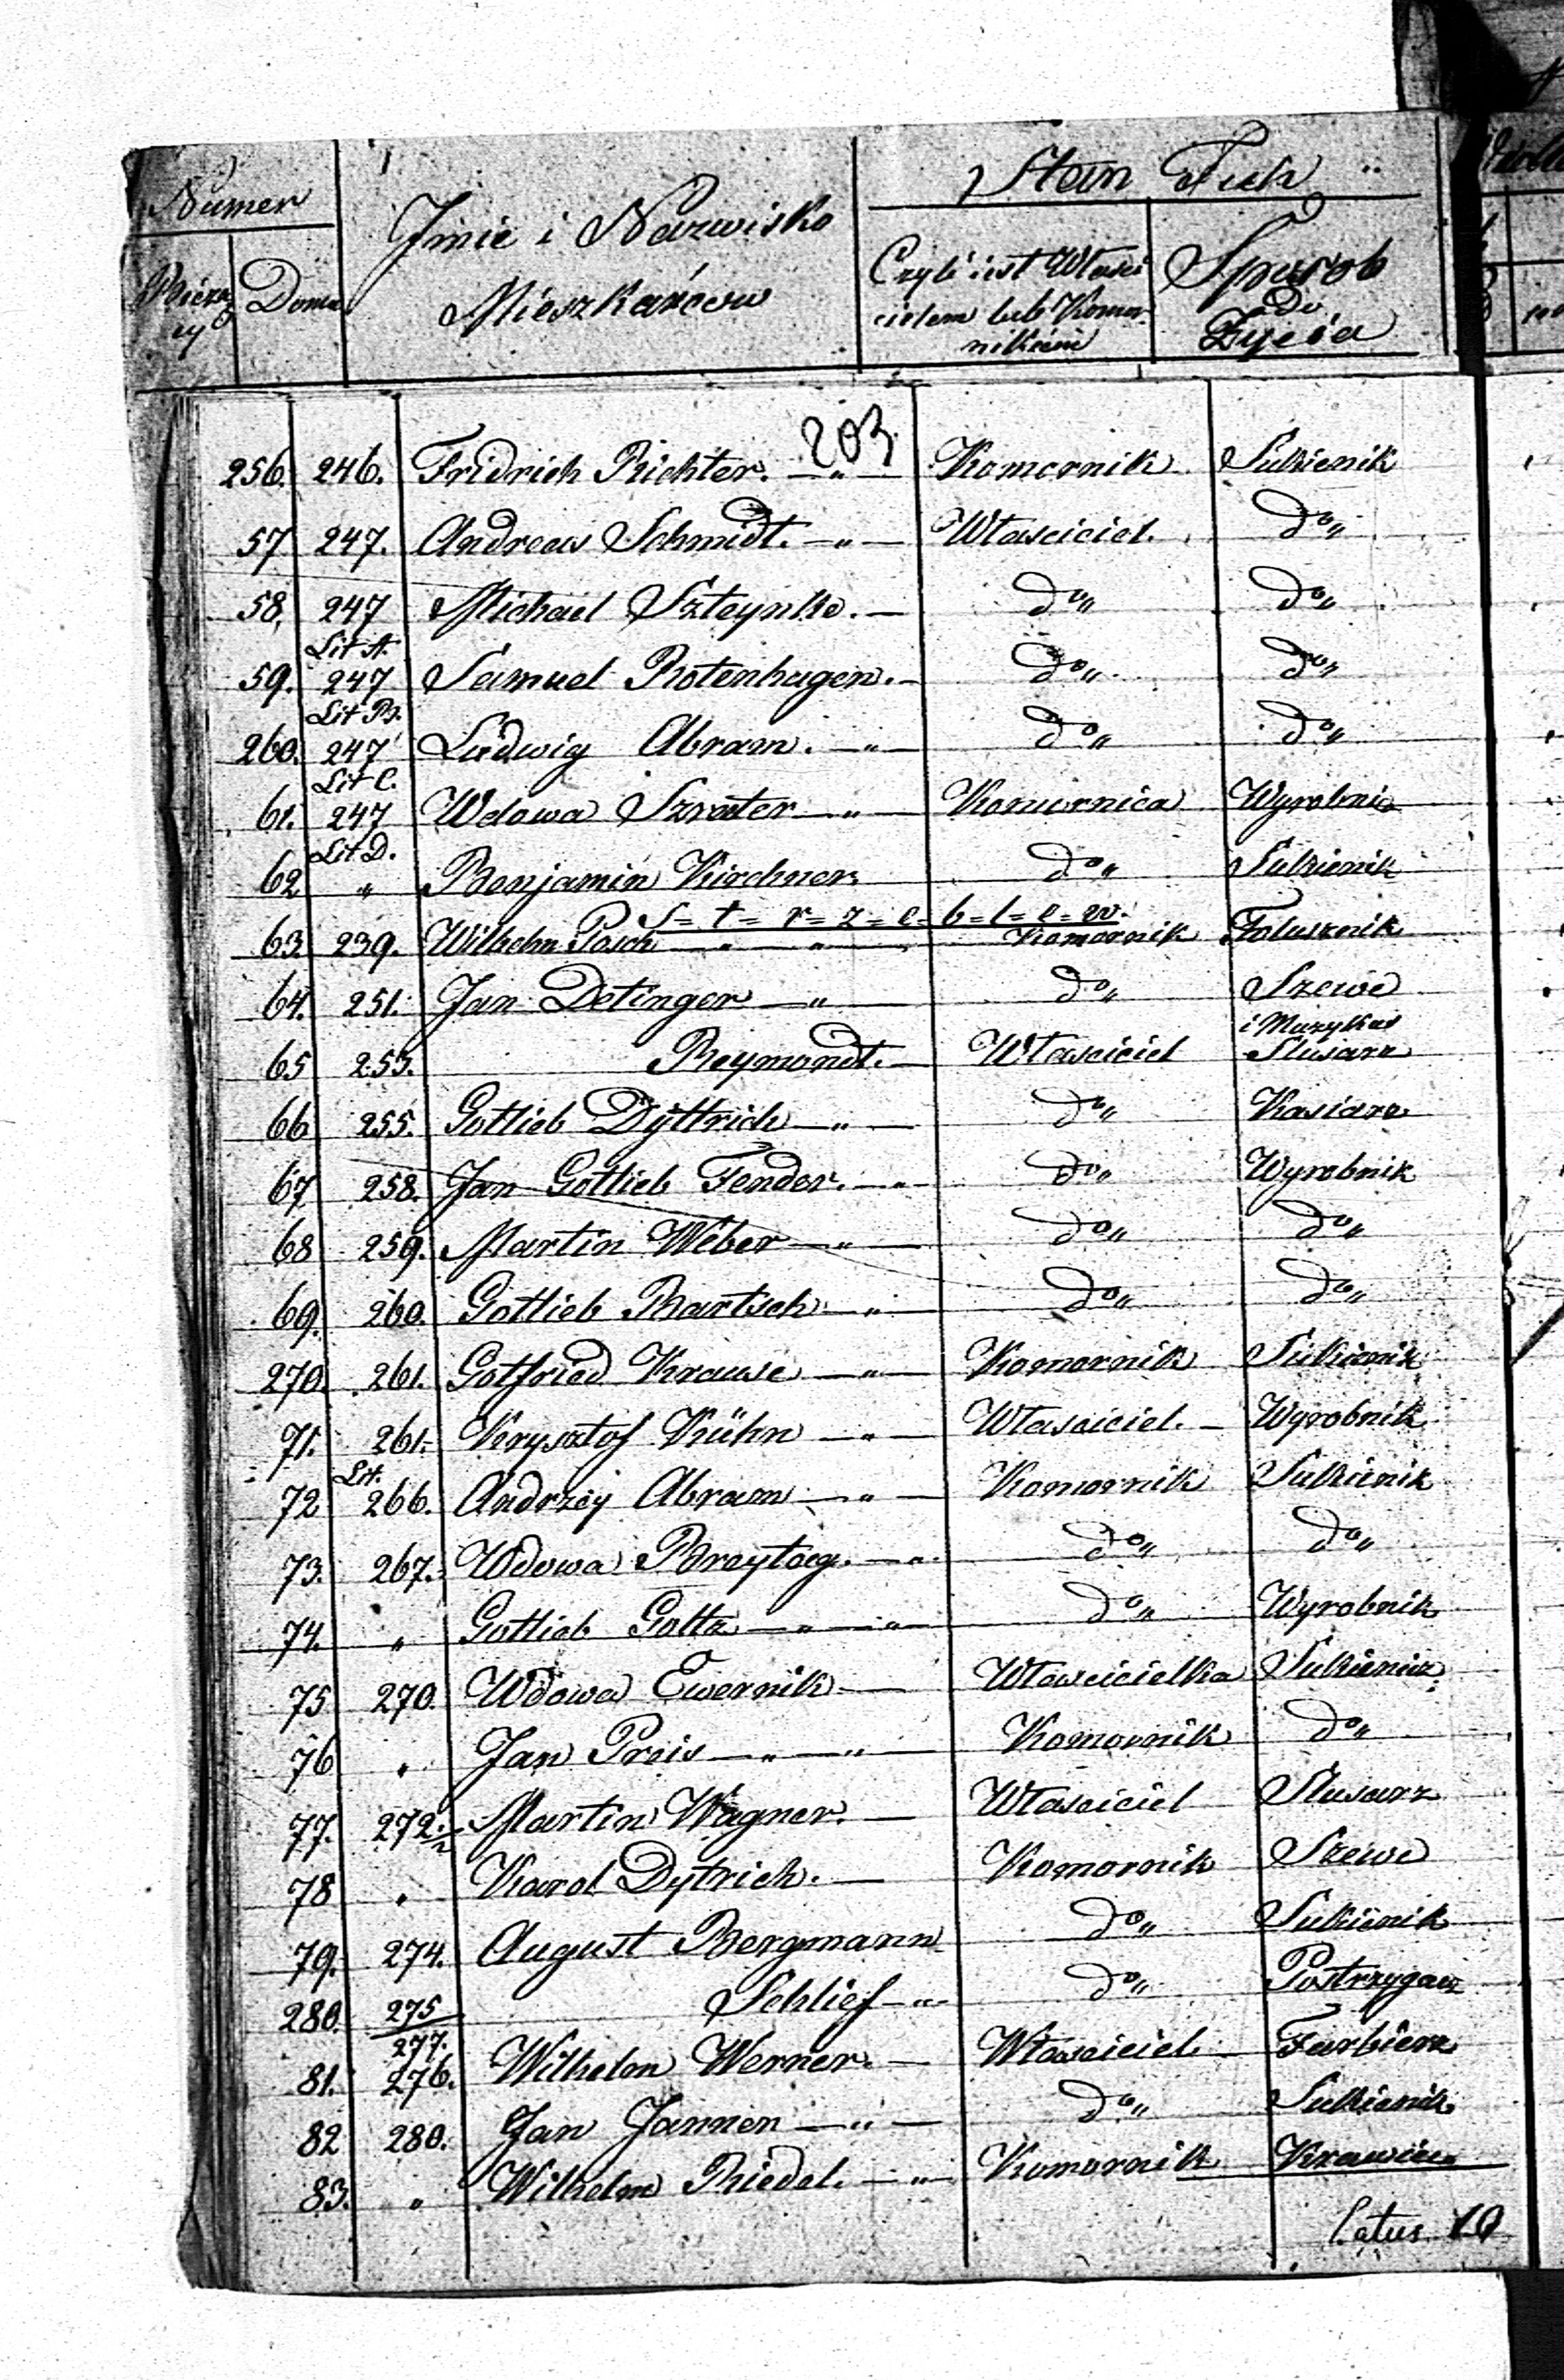 Numer
Imie i Nazwisko
Mieszkańców
Stan Tich
Bieżący
Domu
Czyli iest Właści
cielem lub Komor
nikiem
Sposob
do
Życia
203
256. 246. Fridrich Richter. — " — Komornik Sukienik
57 247. Andreas Schmidt. — " — Własciciel. do "
58. 247 Michael Szteynke. — do " do "
Lit A.
59. 247 Samuel Rotenhagen. — do " do "
Lit B.
260. 247 Ludwig Abram. — " — do " do "
Lit C.
61. 247 Wdowa Szrater — " — Komornica Wyrobnica
Lit D.
62 " Benjamin Kirchner. do " Sukienik
S = t = r = z = e = b = l = e = w.
63. 239. Wilhelm Pasch — " — " — Komornik Folusznik
64. 251. Jan Detinger — " — do " Szewc
i Muzykus
65 253. Reymondt. — Własciciel Slusarz
66 255. Gottlieb Dyttrich — " — do " Kasiarz
67 258. Jan Gottlieb Fender. — " — do " Wyrobnik
68 259. Martin Weber — " — do " do "
69. 260. Gottlieb Bartsch — " — do " do "
270. 261. Gotfried Krause — " — Komornik Sukienik
71. 261. Krysztof Kühn — " — Własciciel. — Wyrobnik
Lit.
72 266. Andrzey Abram — " — Komornik Sukienik
73. 267. Wdowa Breytag. — " do " do "
74. " Gottlieb Goltz — " — " — do " Wyrobnik
75 270. Wdowa Ewernik — Włascicielka Sukienica
76 " Jan Preis — " — " — Komornik do "
77. 272. Martin Wagner. — Własciciel Slusarz
78 " Karol Dytrich. — Komornik Szewc
79. 274. August Bergmann do " Sukienik
280. 275 Schlief — " — do " Postrzygacz
277.
81. 276. Wilhelm Werner. — Własciciel. — Farbierz
82 280. Jan Jannen — " — do " Sukienik
83. " Wilhelm Riedel. — " — Komornik Krawiec
Latus 10